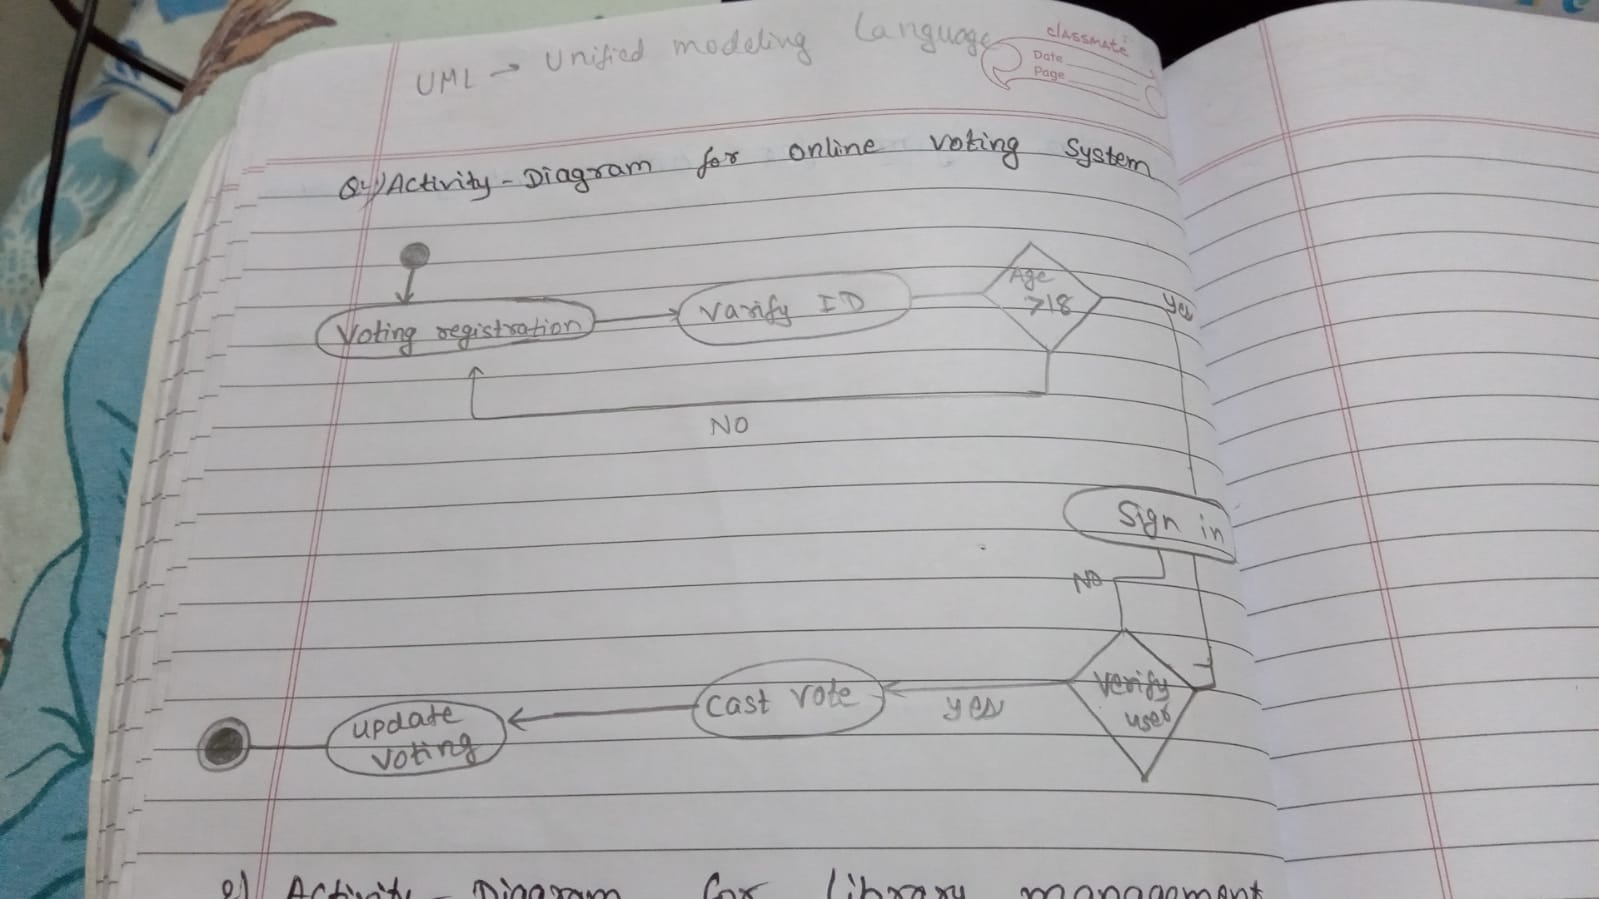 UML → Unified modeling Language
classmate
Date
Page
Q1) Activity-Diagram for online voting System
Voting registration
Varify ID
Age
>18
Yes
NO
Sign in
NO
Verify
user
yes
Cast vote
update
voting
2) Activity-Diagram for library management